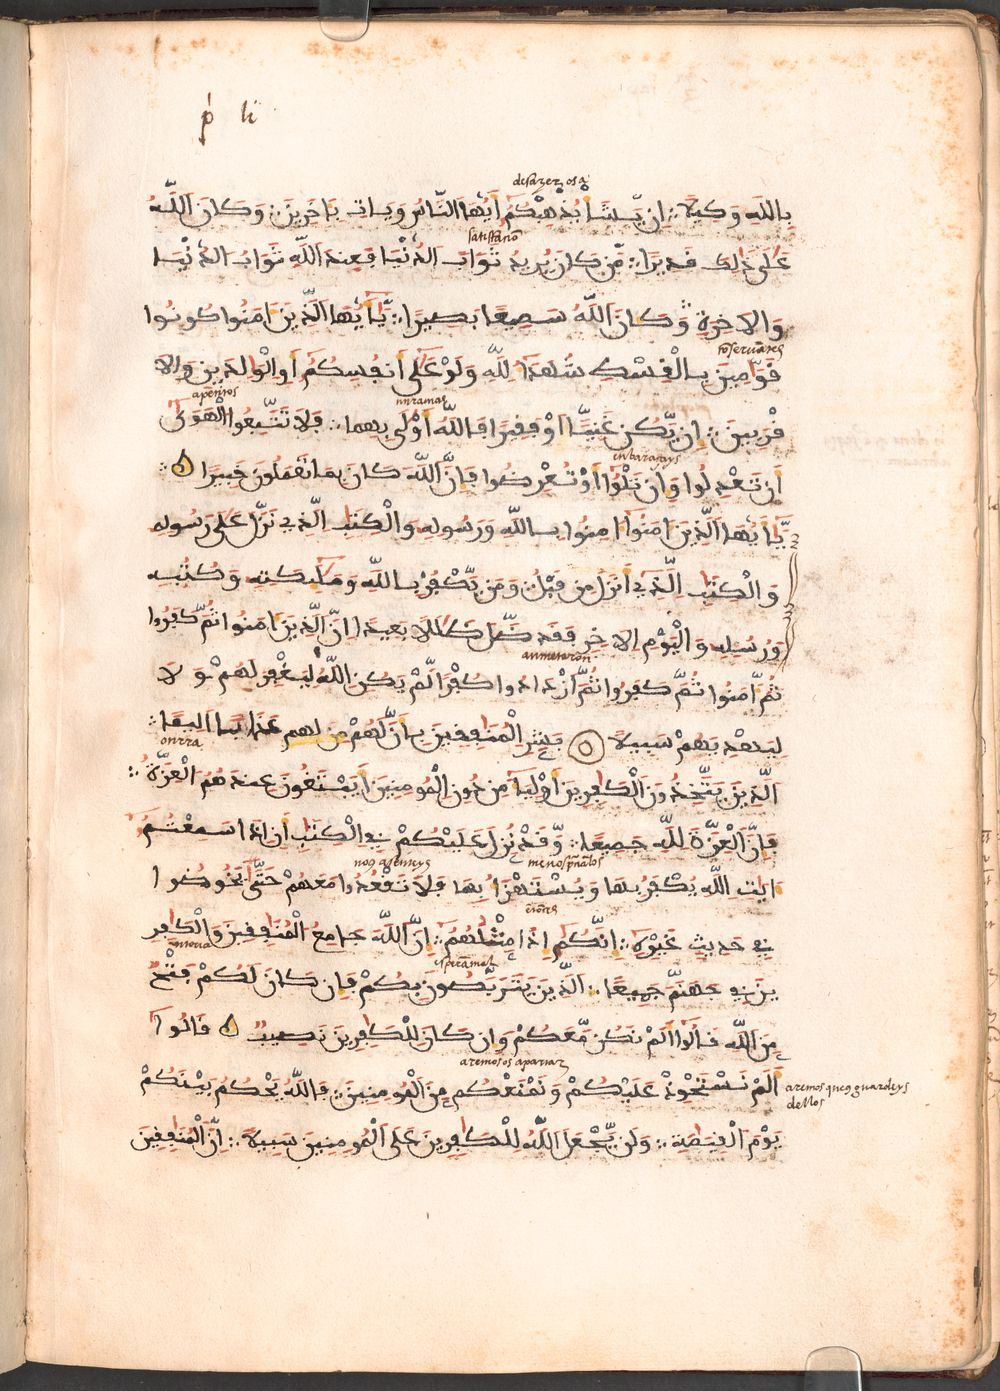 p li
desazer os a
بِاللَّهِ وَكِيلًا ۞ إِن يَّشَأْ يُذْهِبْكُمْ أَيُّهَا النَّاسُ وَيَاتِ بِـَٔاخَرِينَ ۞ وَكَانَ اللَّهُ
satisfation
عَلَىٰ ذَٰلِكَ قَدِيرًا ۞ مَّن كَانَ يُرِيدُ ثَوَابَ الدُّنْيَا فَعِندَ اللَّهِ ثَوَابُ الدُّنْيَا
وَالَاخِرَةِ وَكَانَ اللَّهُ سَمِيعًا بَصِيرًا ۞ يَٰأَيُّهَا الَّذِينَ ءَامَنُوا كُونُوا
قَوَّٰمِينَ بِالْقِسْطِ شُهَدَآءَ لِلَّهِ وَلَوْ عَلَىٰ أَنفُسِكُمُ أَوِ الْوَٰلِدَيْنِ وَالَا
apetitos
قْرَبِينَ ۞ إِن يَّكُنْ غَنِيًّا أَوْ فَقِيرًا فَاللَّهُ أَوْلَىٰ بِهِمَا ۞ فَلَا تَتَّبِعُوا الْهَوَىٰ
enbaraçays
أَن تَعْدِلُوا وَإِن تَلْوُۥٓا أَوْ تُعْرِضُوا فَإِنَّ اللَّهَ كَانَ بِمَا تَعْمَلُونَ خَبِيرًا ۞
يَٰأَيُّهَا الَّذِينَ ءَامَنُوٓا ءَامِنُوا بِاللَّهِ وَرَسُولِهِ وَالْكِتَٰبِ الَّذِي نَزَّلَ عَلَىٰ رَسُولِهِ
وَالْكِتَٰبِ الَّذِي أَنزَلَ مِن قَبْلُ وَمَن يَّكْفُرْ بِاللَّهِ وَمَلَٰٓئِكَتِهِ وَكُتُبِهِ
وَرُسُلِهِ وَالْيَوْمِ الَاخِرِ فَقَد ضَّلَّ ضَلَٰلًا بَعِيدًا إِنَّ الَّذِينَ ءَامَنُوا ثُمَّ كَفَرُوا
aumentaron
ثُمَّ ءَامَنُوا ثُمَّ كَفَرُوا ثُمَّ ازْدَادُوا كُفْرًا لَّمْ يَكُنِ اللَّهُ لِيَغْفِرَ لَهُمْ وَلَا
لِيَهْدِيَهُمْ سَبِيلًا ۞ بَشِّرِ الْمُنَٰفِقِينَ بِأَنَّ لَهُمْ عَذَابًا اَلِيمًا ۞
onrra
الَّذِينَ يَتَّخِذُونَ الْكَٰفِرِينَ أَوْلِيَآءَ مِن دُونِ الْمُومِنِينَ أَيَبْتَغُونَ عِندَهُمُ الْعِزَّةَ ۞
فَإِنَّ الْعِزَّةَ لِلَّهِ جَمِيعًا ۞ وَقَدْ نُزِّلَ عَلَيْكُمْ فِي الْكِتَٰبِ أَنِ اذَا سَمِعْتُمُ
menospreciados
nos asenteys
ءَايَٰتِ اللَّهِ يُكْفَرُ بِهَا وَيُسْتَهْزَأُ بِهَا فَلَا تَقْعُدُوا مَعَهُمْ حَتَّىٰ يَخُوضُوا
فِي حَدِيثٍ غَيْرِهِ ۞ إِنَّكُمُ إِذًا مِّثْلُهُمُ ۞ إِنَّ اللَّهَ جَامِعُ الْمُنَٰفِقِينَ وَالْكَٰفِرِ
يِنَ فِي جَهَنَّمَ جَمِيعًا ۞ الَّذِينَ يَتَرَبَّصُونَ بِكُمْ فَإِن كَانَ لَكُمْ فَتْحٌ
مِّنَ اللَّهِ قَالُوٓا أَلَمْ نَكُن مَّعَكُمْ وَإِن كَانَ لِلْكَٰفِرِينَ نَصِيبٌ ۞ قَالُوٓا
aremosos apartar
أَلَمْ نَسْتَحْوِذْ عَلَيْكُمْ وَنَمْنَعْكُم مِّنَ الْمُومِنِينَ ۞ فَاللَّهُ يَحْكُمُ بَيْنَكُمْ
aremos que os guardeys
dellos
يَوْمَ الْقِيَٰمَةِ ۞ وَلَن يَّجْعَلَ اللَّهُ لِلْكَٰفِرِينَ عَلَى الْمُومِنِينَ سَبِيلًا ۞ إِنَّ الْمُنَٰفِقِينَ